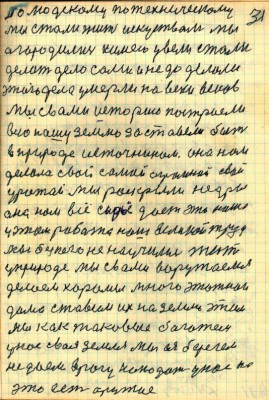 По людскому по техническому 31
мы стали жить искуством мы
огородились камень увели стали
делать дело сами и не до делали
этого дело умерли на веки веков
мы с вами историю построели
всю нашу землю заставели быть
в природе источником она нам
делала свой самый свой
урожай мы раскрыли недры
она нам всё сырьё дает это наша
у этом работа наш великой труд
мы бугого не научилися жить
у природе мы с вами воружаемся
делаем хоромы много этажный
домо ставем их на земли этем
мы как таковые богатеем
у нас своя земля мы ея берегем
недаем врагу нападать у нас на
это есть оружие